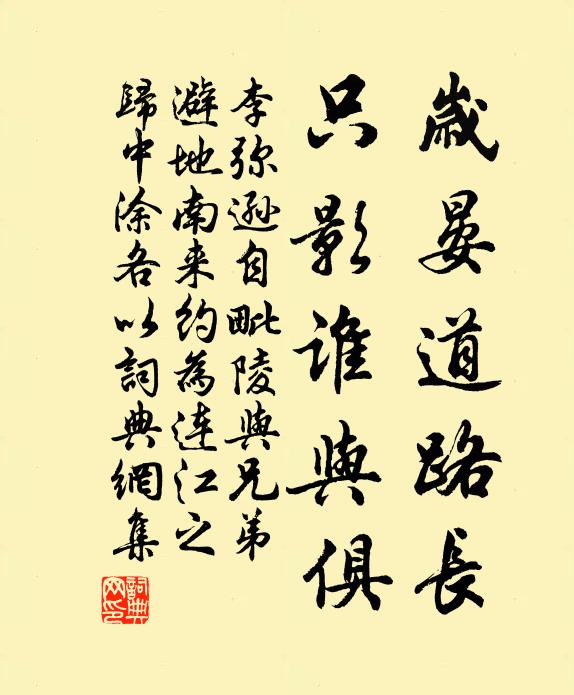 歲晏道路長
只影誰與俱
李弥遜自毗陵與兄弟
避地南来約為連江之
歸中涂各以詞典網集
詞典網印